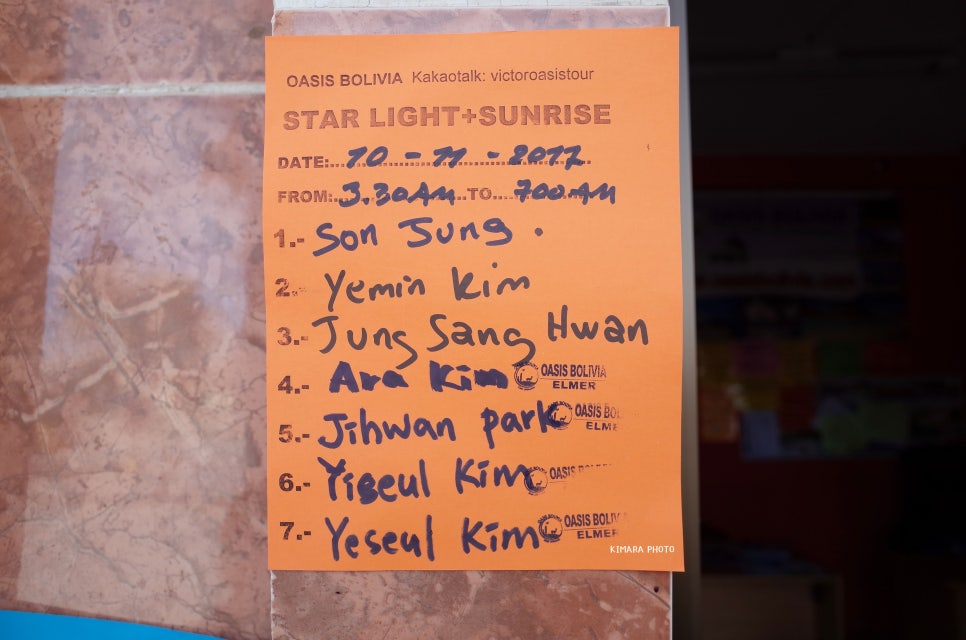 OASIS BOLIVIA Kakaotalk: victoroasistour
STAR LIGHT+SUNRISE
DATE:....10 - 11 - 2017..
FROM:.3.30AM..TO....700AM
1.- Son Jung .
2.- Yemin Kim
3.- Jung Sang Hwan
4.- Ara Kim OASIS BOLIVIA
ELMER
5.- Jihwan park OASIS BO
ELM
6.- Yiseul Kim OASIS
7.- Yeseul Kim OASIS BOLIV
ELMER
KIMARA PHOTO